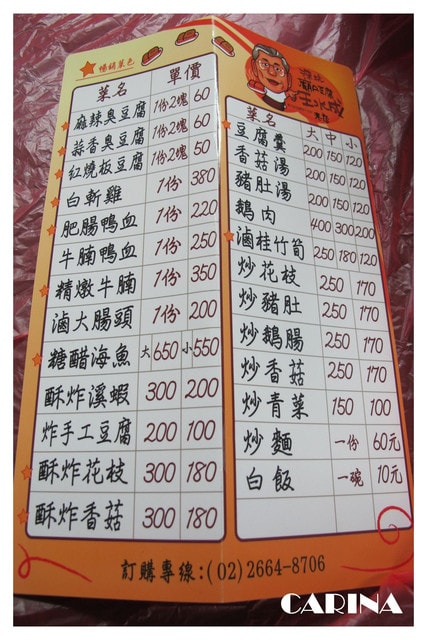 暢銷菜色
菜名 單價
麻辣臭豆腐 1份2塊 60
蒜香臭豆腐 1份2塊 60
紅燒板豆腐 1份2塊 50
白斬雞 1份 380
肥腸鴨血 1份 220
牛腩鴨血 1份 250
精燉牛腩 1份 350
滷大腸頭 1份 200
糖醋海魚 大650 小550
酥炸溪蝦 300 200
炸手工豆腐 200 100
酥炸花枝 300 180
酥炸香菇 300 180
菜名 大 中 小
豆腐羹 200 150 120
香菇湯 200 150 120
豬肚湯 200 150 120
鵝肉 400 300 200
滷桂竹筍 250 180 120
炒花枝 250 170
炒豬肚 250 170
炒鵝腸 250 170
炒香菇 250 170
炒青菜 150 100
炒麵 一份 60元
白飯 一碗 10元
訂購專線:(02)2664-8706
CARINA